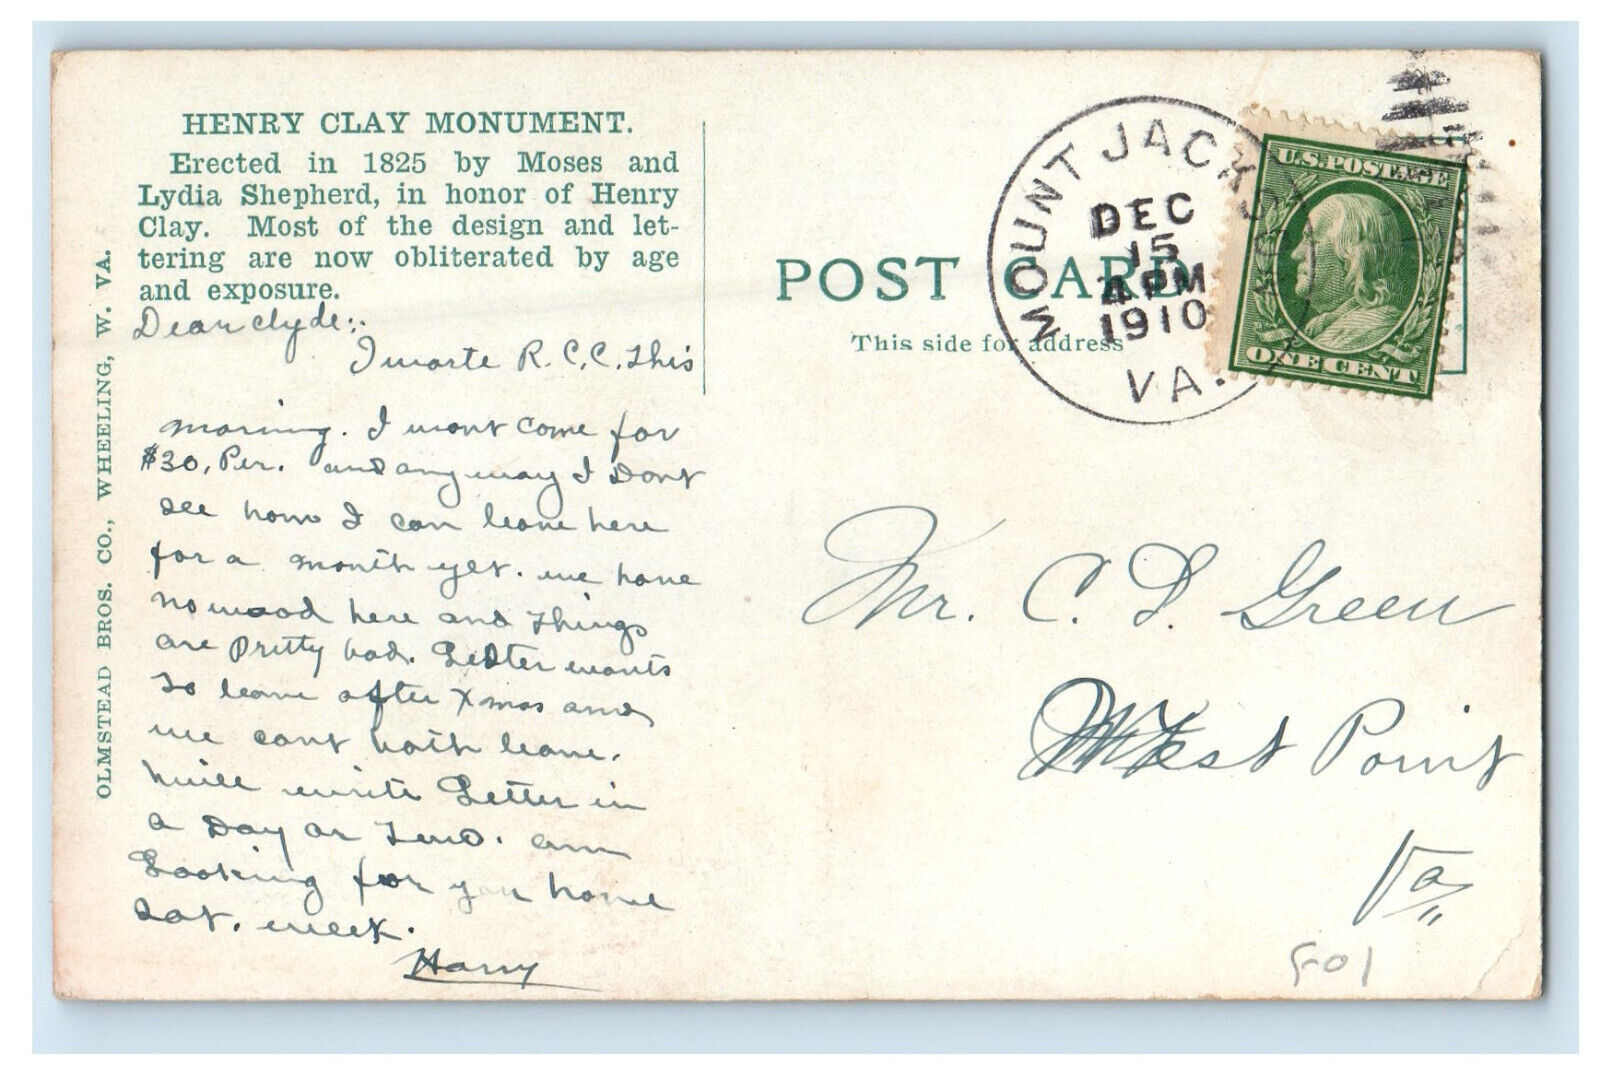 HENRY CLAY MONUMENT.
Erected in 1825 by Moses and
Lydia Shepherd, in honor of Henry
Clay. Most of the design and let-
tering are now obliterated by age
and exposure.
OLMSTEAD BROS. CO., WHEELING, W. VA.
Dear Clyde:.
I wrote R.C.C. This
morning. I wont come for
$30, Per. and anyway I Dont
see how I can leave here
for a month yet. we have
no wood here and Things
are Pretty bad. Lester wants
To leave after Xmas and
we cant both leave.
will write Letter in
a Day or Two. am
Looking for you home
Sat. week.
Harry
POST CARD
This side for address
MOUNT JACKSON
DEC
15
4 PM
1910
VA.
U.S. POSTAGE
ONE CENT
Mr. C. D. Green
West Point
Va
501